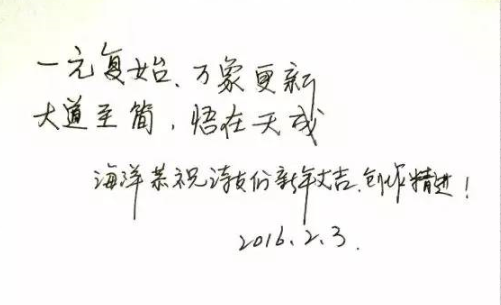 一元复始、万象更新
大道至简，悟在天成
海洋恭祝诗友们新年大吉、创作精进！
2016.2.3.